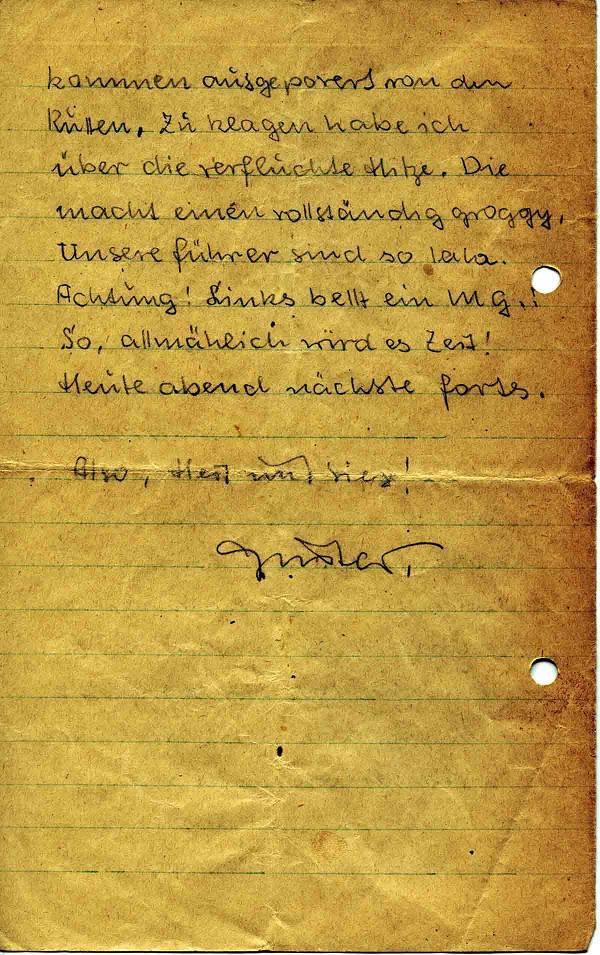 kommen ausgepovert von den
Zu klagen habe ich
über die verfluchte Hitze. Die
macht einen vollständig groggy.
Unsere führer sind so lala.
Achtung! Links bellt ein M.G.!
So, allmählich wird es Zeit!
Heute abend nächste forts.
Also, Heil und Sieg!